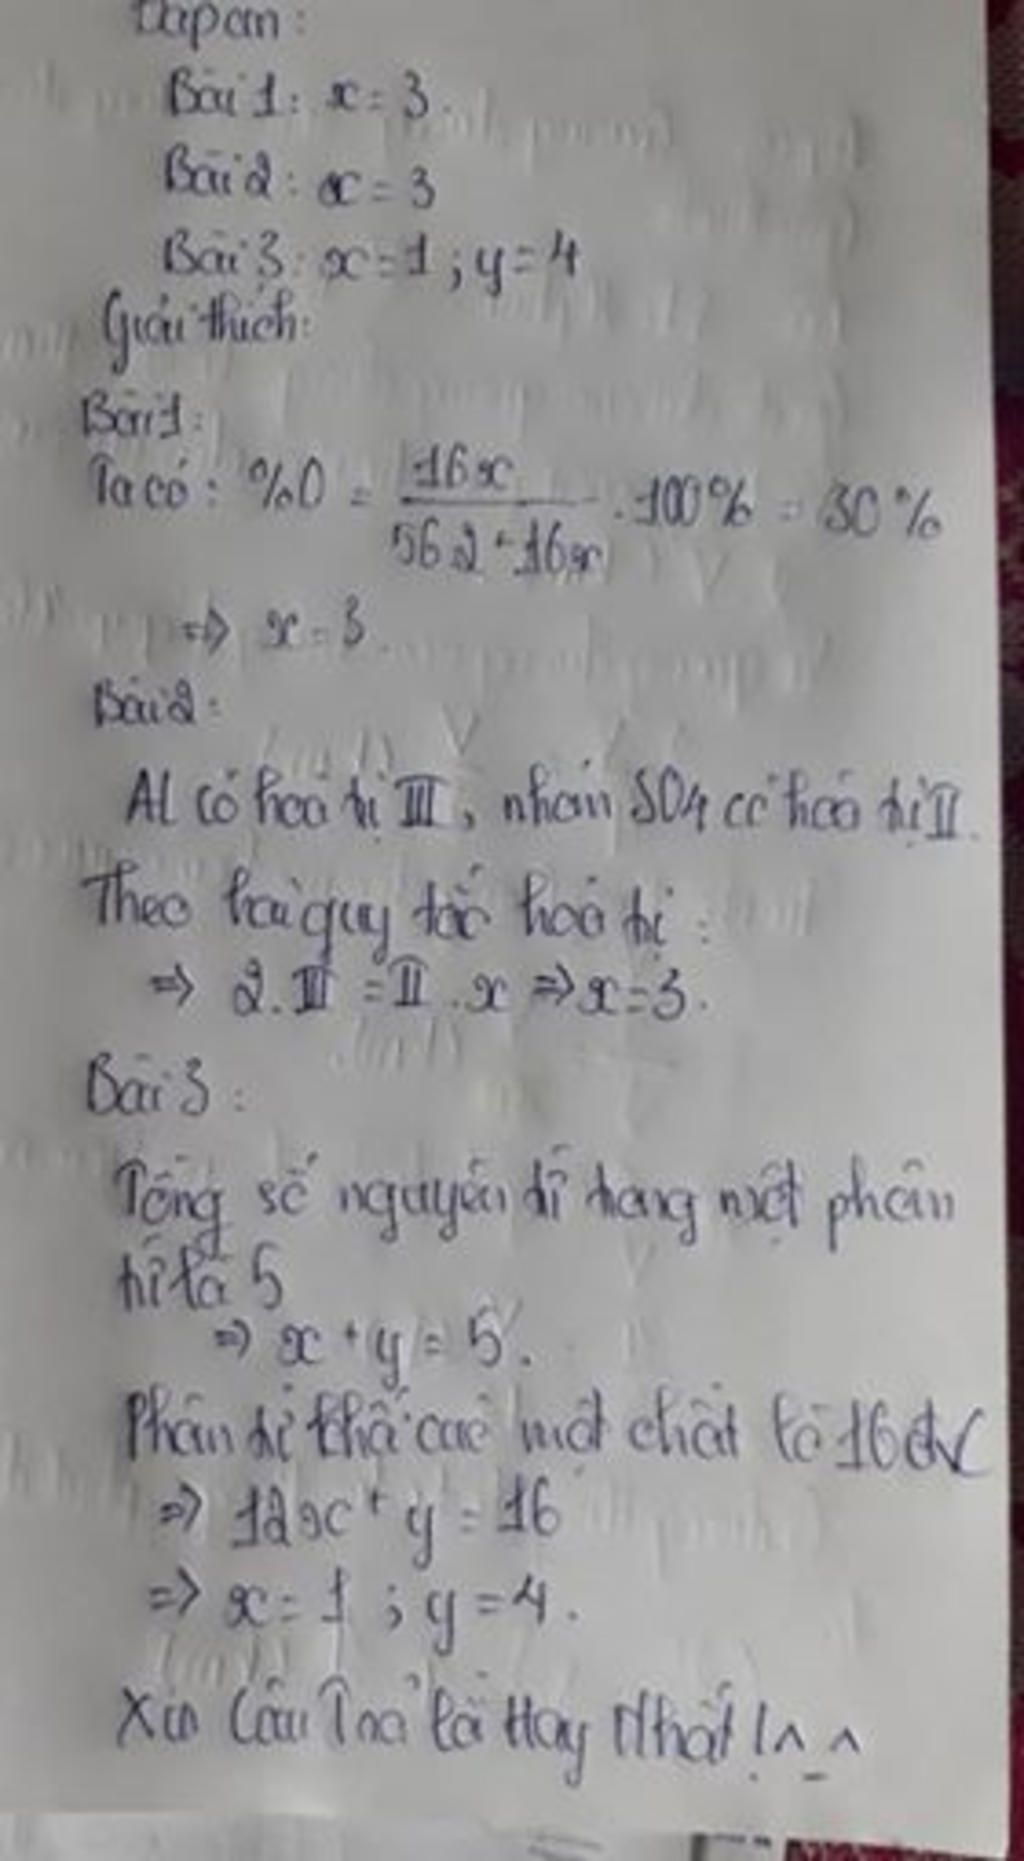 Đáp án:
Bài 1: x = 3.
Bài 2: x = 3
Bài 3: x = 1 ; y = 4
Giải thích:
Bài 1:
Ta có: %O = 16x / 56.2 + 16x . 100% = 30%
=> x = 3.
Bài 2:
Al có hoá trị III, nhóm SO4 có hoá trị II.
Theo quy tắc hoá trị:
=> 2.III = II.x => x = 3.
Bài 3:
Tổng số nguyên tử trong một phân
tử là 5
=> x + y = 5.
Phân tử khối của một chất là 16 đvC
=> 12x + y = 16
=> x = 1 ; y = 4.
Xin Câu Trả Lời Hay Nhất! ^_^